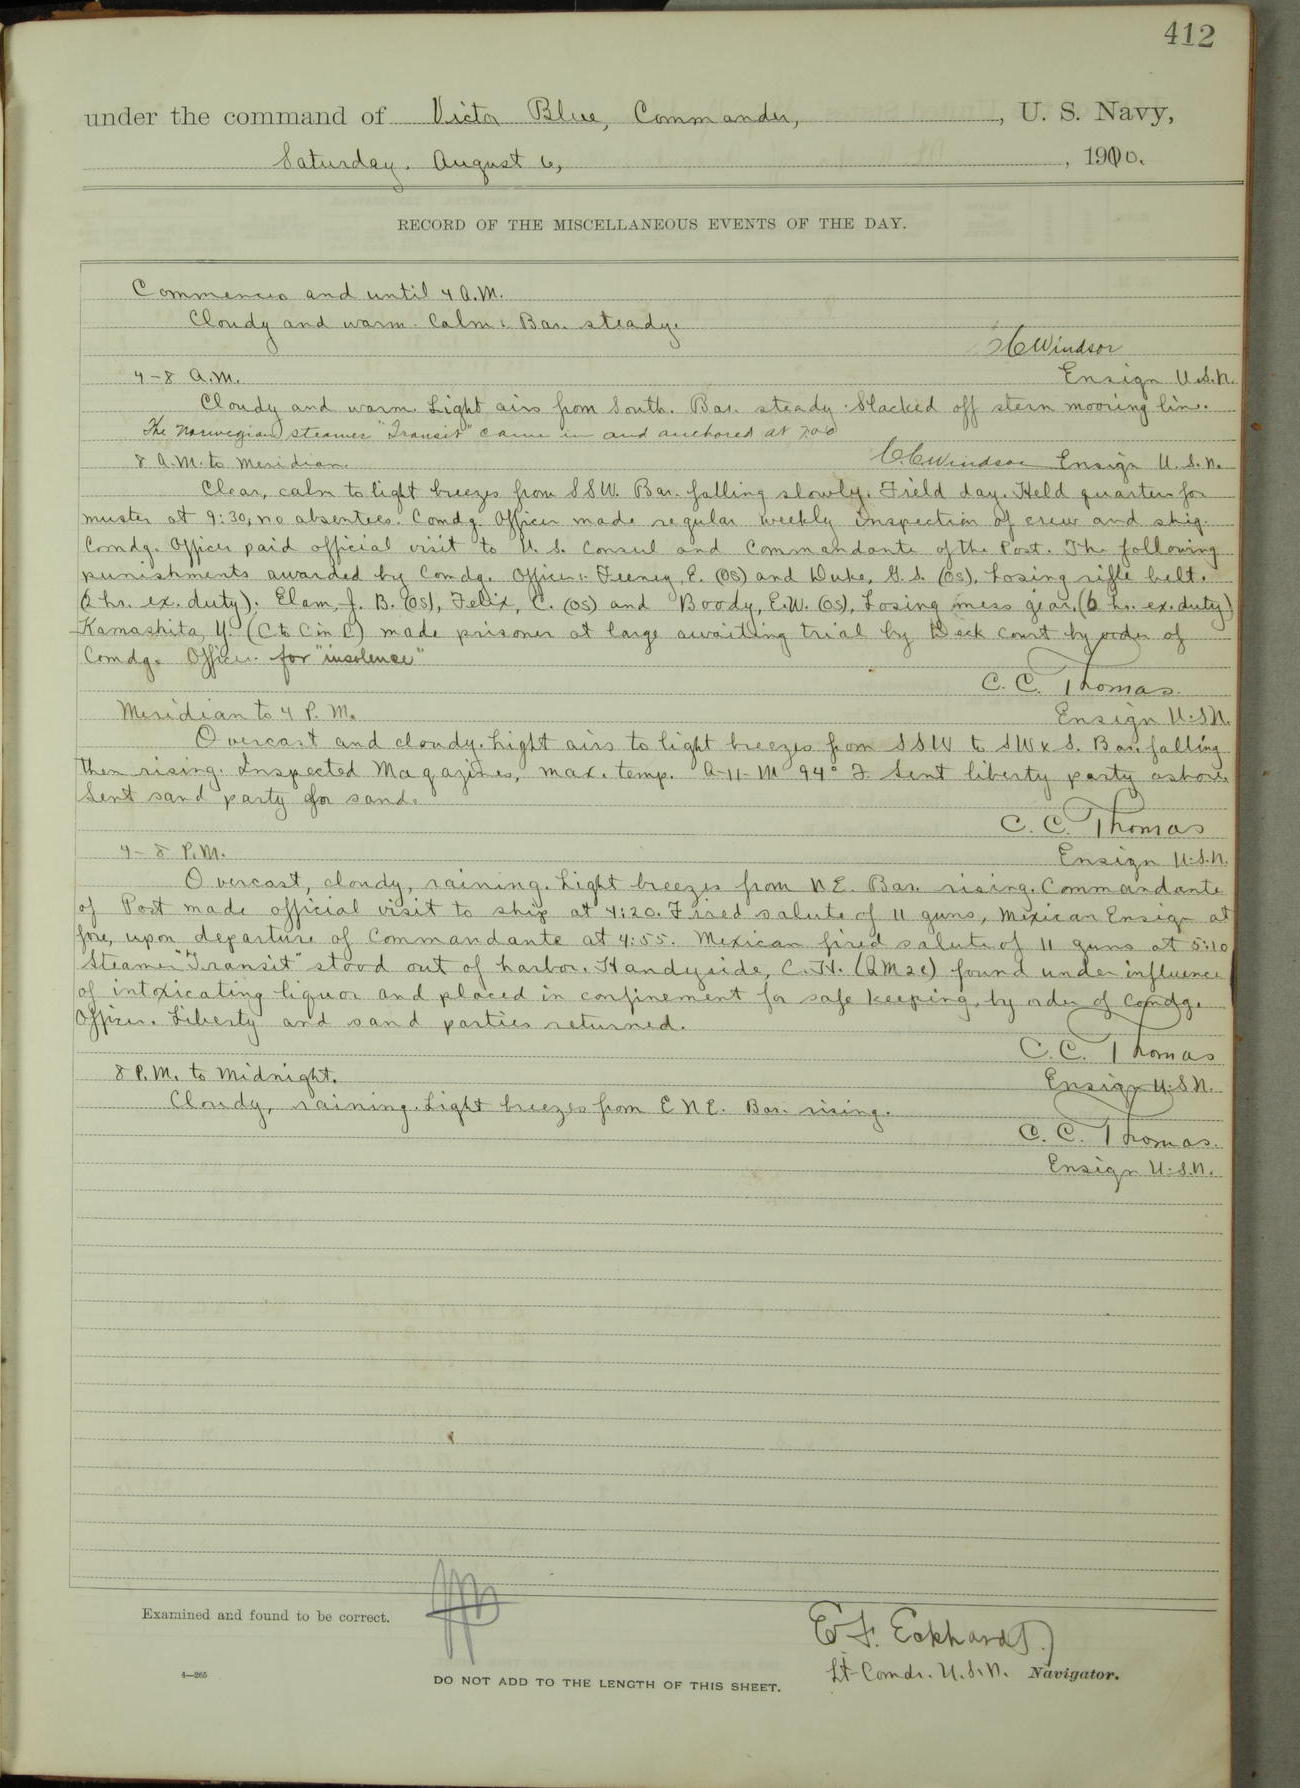 412
under the command of Victor Blue, Commander, , U. S. Navy,
Saturday. August 6, , 1910.
RECORD OF THE MISCELLANEOUS EVENTS OF THE DAY.
Commences and until 4 A.M.
Cloudy and warm. Calm. Bar. steady.
CCWindsor
4-8 A.M. Ensign U.S.N.
Cloudy and warm. Light airs from South. Bar. steady. Slacked off stern mooring line.
The Norwegian steamer "Transit" came in and anchored at 7.00
8 A.M. to Meridian. C.C.Windsor Ensign U.S.N.
Clear, calm to light breezes from SSW. Bar. falling slowly. Field day. Held quarters for
muster at 9:30, no absentees. Comdg. Officer made regular weekly inspection of crew and ship.
Comdg. Officer paid official visit to U.S. Consul and Commandante of the Post. The following
punishments awarded by Comdg. Officer: Feeney, E. (OS) and Duke, G.S. (OS), Losing rifle belt.
(2 hr. ex. duty). Elam, J. B. (OS), Felix, C. (OS) and Boody, E.W. (OS), Losing mess gear, (6 hr. ex. duty)
Kamashita, Y. (C to C in C) made prisoner at large awaiting trial by Deck court by order of
Comdg. Officer for "insolence"
C. C. Thomas
Meridian to 4 P.M. Ensign U.S.N.
Overcast and cloudy. Light airs to light breezes from SSW to SW x S. Bar. falling
then rising. Inspected Magazines, max. temp. A-11-M 94° F. Sent liberty party ashore.
Sent sand party for sand.
C. C. Thomas
4-8 P.M. Ensign U.S.N.
Overcast, cloudy, raining. Light breezes from NE. Bar. rising. Commandante
of Post made official visit to ship at 4:20. Fired salute of 11 guns, Mexican Ensign at
fore, upon departure of Commandante at 4:55. Mexican fired salute of 11 guns at 5:10
Steamer "Transit" stood out of harbor. Handyside, C.H. (QM2c) found under influence
of intoxicating liquor and placed in confinement for safe keeping, by order of Comdg.
Officer. Liberty and sand parties returned.
C. C. Thomas
8 P.M. to Midnight. Ensign U.S.N.
Cloudy, raining. Light breezes from ENE. Bar. rising.
C. C. Thomas.
Ensign U.S.N.
Examined and found to be correct.
E F. Eckhardt
Lt-Comdr. U.S.N. Navigator.
4—265
DO NOT ADD TO THE LENGTH OF THIS SHEET.